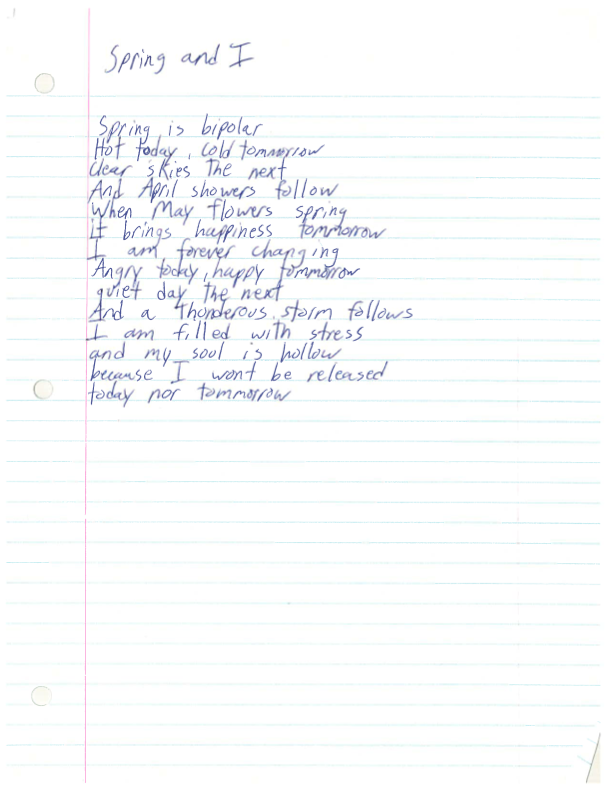 Spring and I
Spring is bipolar
Hot today, cold tommorrow
clear skies the next
And April showers follow
When May flowers spring
it brings happiness tommorrow
I am forever changing
Angry today, happy tommorrow
quiet day the next
And a thonderous storm follows
I am filled with stress
and my soul is hollow
because I wont be released
today nor tommorrow